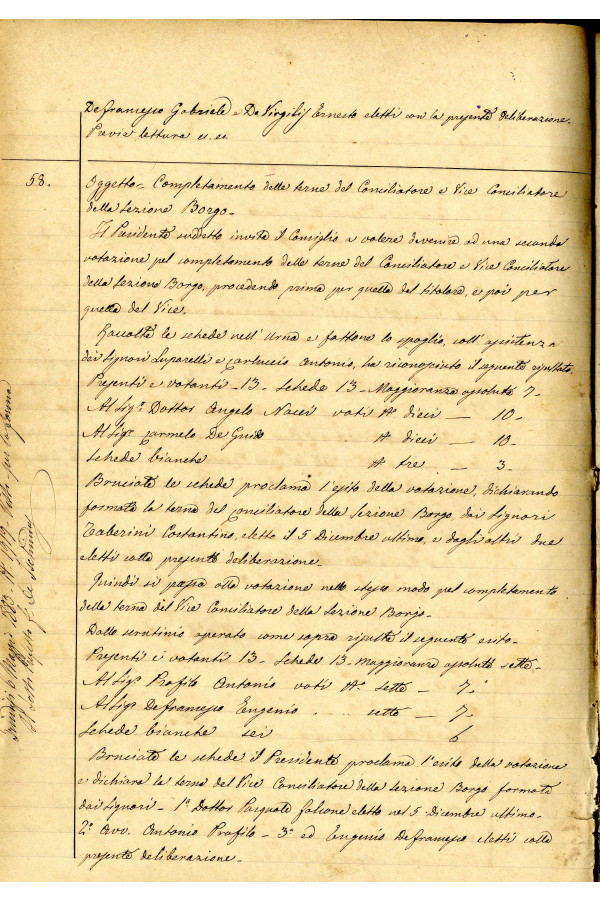 Defrancesco Gabriele e De Virgiliis Ernesto eletti con la presente deliberazione.
Previa lettura ec. ec.
58.
Oggetto - Completamento delle terne del Conciliatore e Vice Conciliatore
della Sezione Borgo -
Il Presidente suddetto invita il Consiglio a volere devenire ad una seconda
votazione pel completamento delle terne del Conciliatore e Vice Conciliatore
della Sezione Borgo, procedendo prima per quella del titolare, e poi per
quella del Vice.
Raccolte le schede nell'Urna e fattone lo spoglio, coll'assistenza
dei Signori Luparelli e Carluccio Antonio, ha riconosciuto il seguente risultato.
Presenti e votanti - 13 - Schede 13 - Maggioranza assoluta 7 -
Al Sig.r Dottor Angelo Nacci voti N° dieci - 10 -
Al Sig.r Carmelo De Guido N° dieci - 10 -
Schede bianche N° tre - 3 -
Bruciate le schede proclama l'esito della votazione, dichiarando
formata la terna del Conciliatore della Sezione Borgo dai Signori
Costantino, eletto il 5 Dicembre ultimo, e dagli altri due
eletti colla presente deliberazione -
Quindi si passa alla votazione nello stesso modo pel completamento
della terna del Vice Conciliatore della Sezione Borgo -
Dallo scrutinio operato come sopra risulta il seguente esito -
Presenti e votanti 13 - Schede 13 - Maggioranza assoluta sette -
Al Sig.r Profilo Antonio voti N° sette - 7 -
Al Sig.r Defrancesco Eugenio . . sette - 7 -
Schede bianche sei 6
Bruciate le schede il Presidente proclama l'esito della votazione
e dichiara la terna del Vice Conciliatore della Sezione Borgo formata
dai Signori - 1° Dottor Pasquale Falcone eletto nel 5 Dicembre ultimo -
2° Avv. Antonio Profilo - 3° ed Eugenio Defrancesco eletti colla
presente deliberazione -